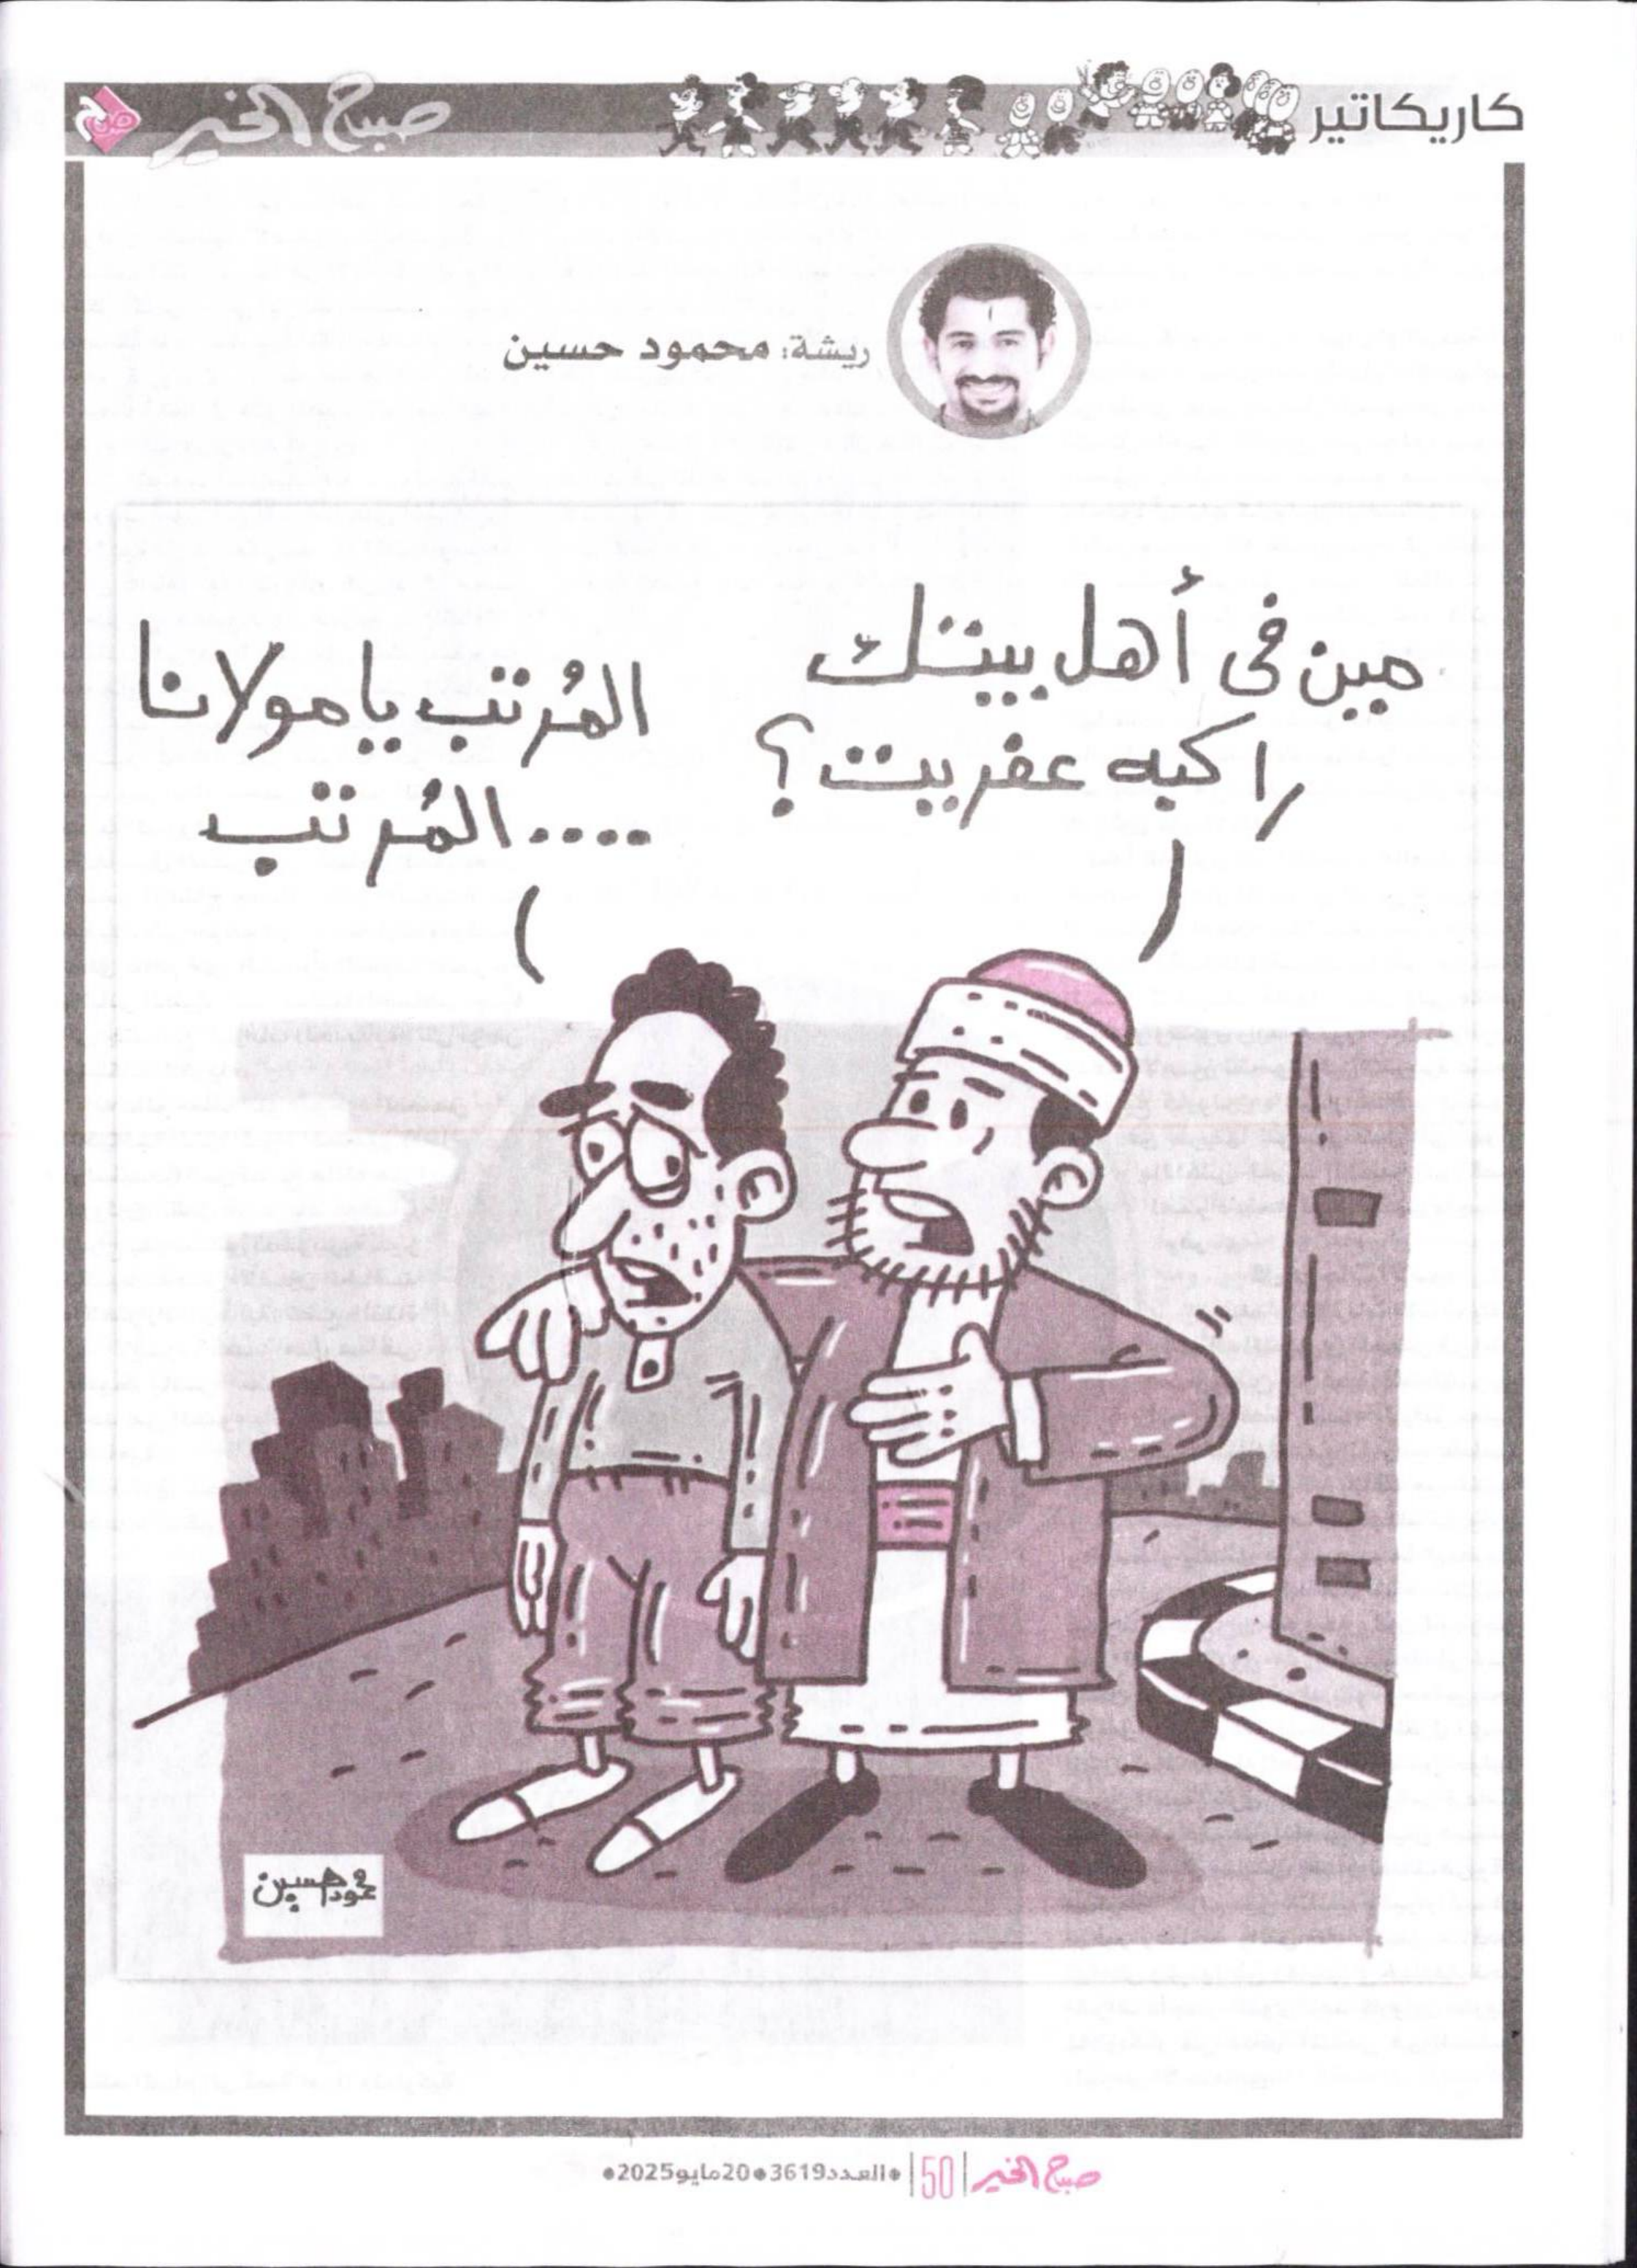 كاريكاتير
صباح الخير
ريشة: محمود حسين
مين فى أهل بيتك
راكبه عفريت؟
المُرتب يا مولانا
....المُرتب
محمود حسين
صباح الخير |50| •العدد3619•20مايو2025•